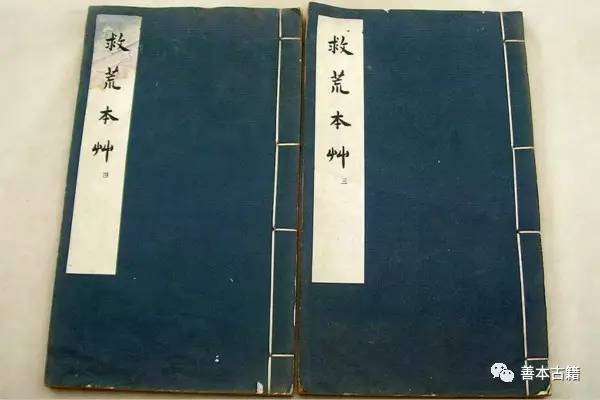 救荒本艸
四
救荒本艸
三
善本古籍